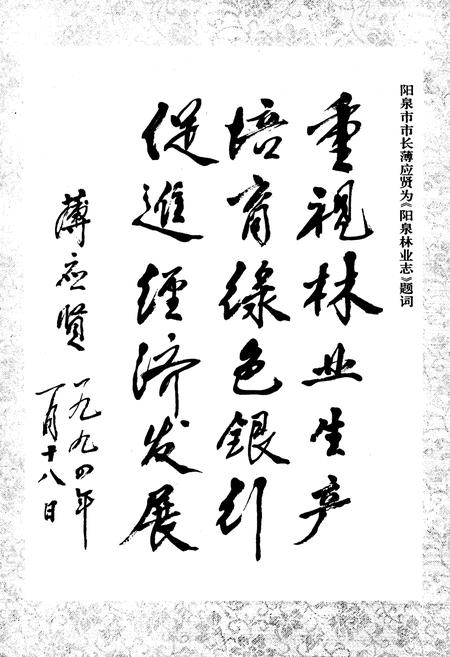 阳泉市市长薄应贤为《阳泉林业志》题词
重視林业生产
培育绿色银行
促進經济发展
薄应贤
一九九四年
一月十八日